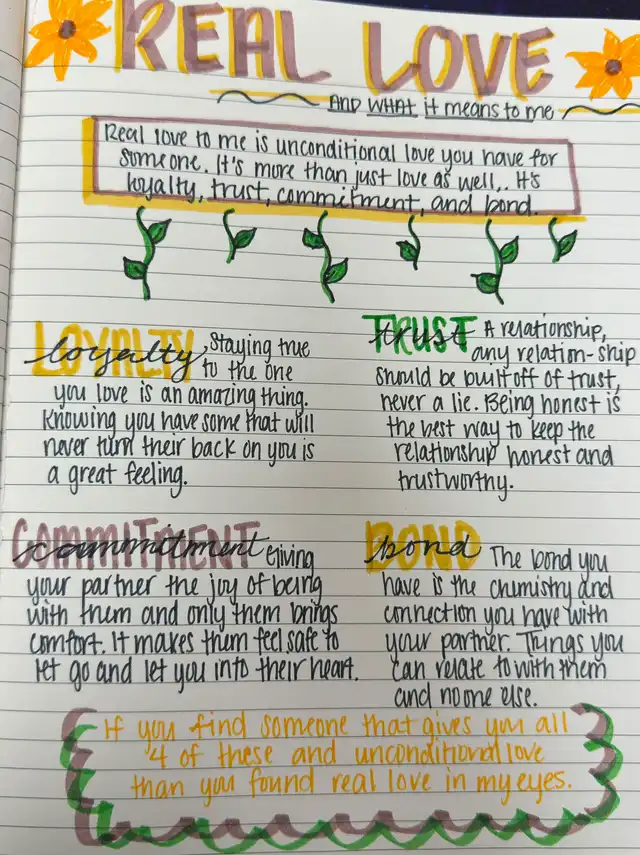 REAL LOVE
AND WHAT it means to me
Real love to me is unconditional love you have for
someone. It's more than just love as well,. It's
loyalty, trust, commitment, and bond.
LOYALTY
loyalty, staying true
to the one
you love is an amazing thing.
Knowing you have some that will
never turn their back on you is
a great feeling.
TRUST
trust A relationship,
any relation-ship
should be built off of trust,
never a lie. Being honest is
the best way to keep the
relationship honest and
trustworthy.
COMMITMENT
commitment Giving
your partner the joy of being
with them and only them brings
comfort. It makes them feel safe to
let go and let you into their heart.
BOND
bond The bond you
have is the chemistry and
connection you have with
your partner. Things you
can relate to with them
and no one else.
If you find someone that gives you all
4 of these and unconditional love
than you found real love in my eyes.